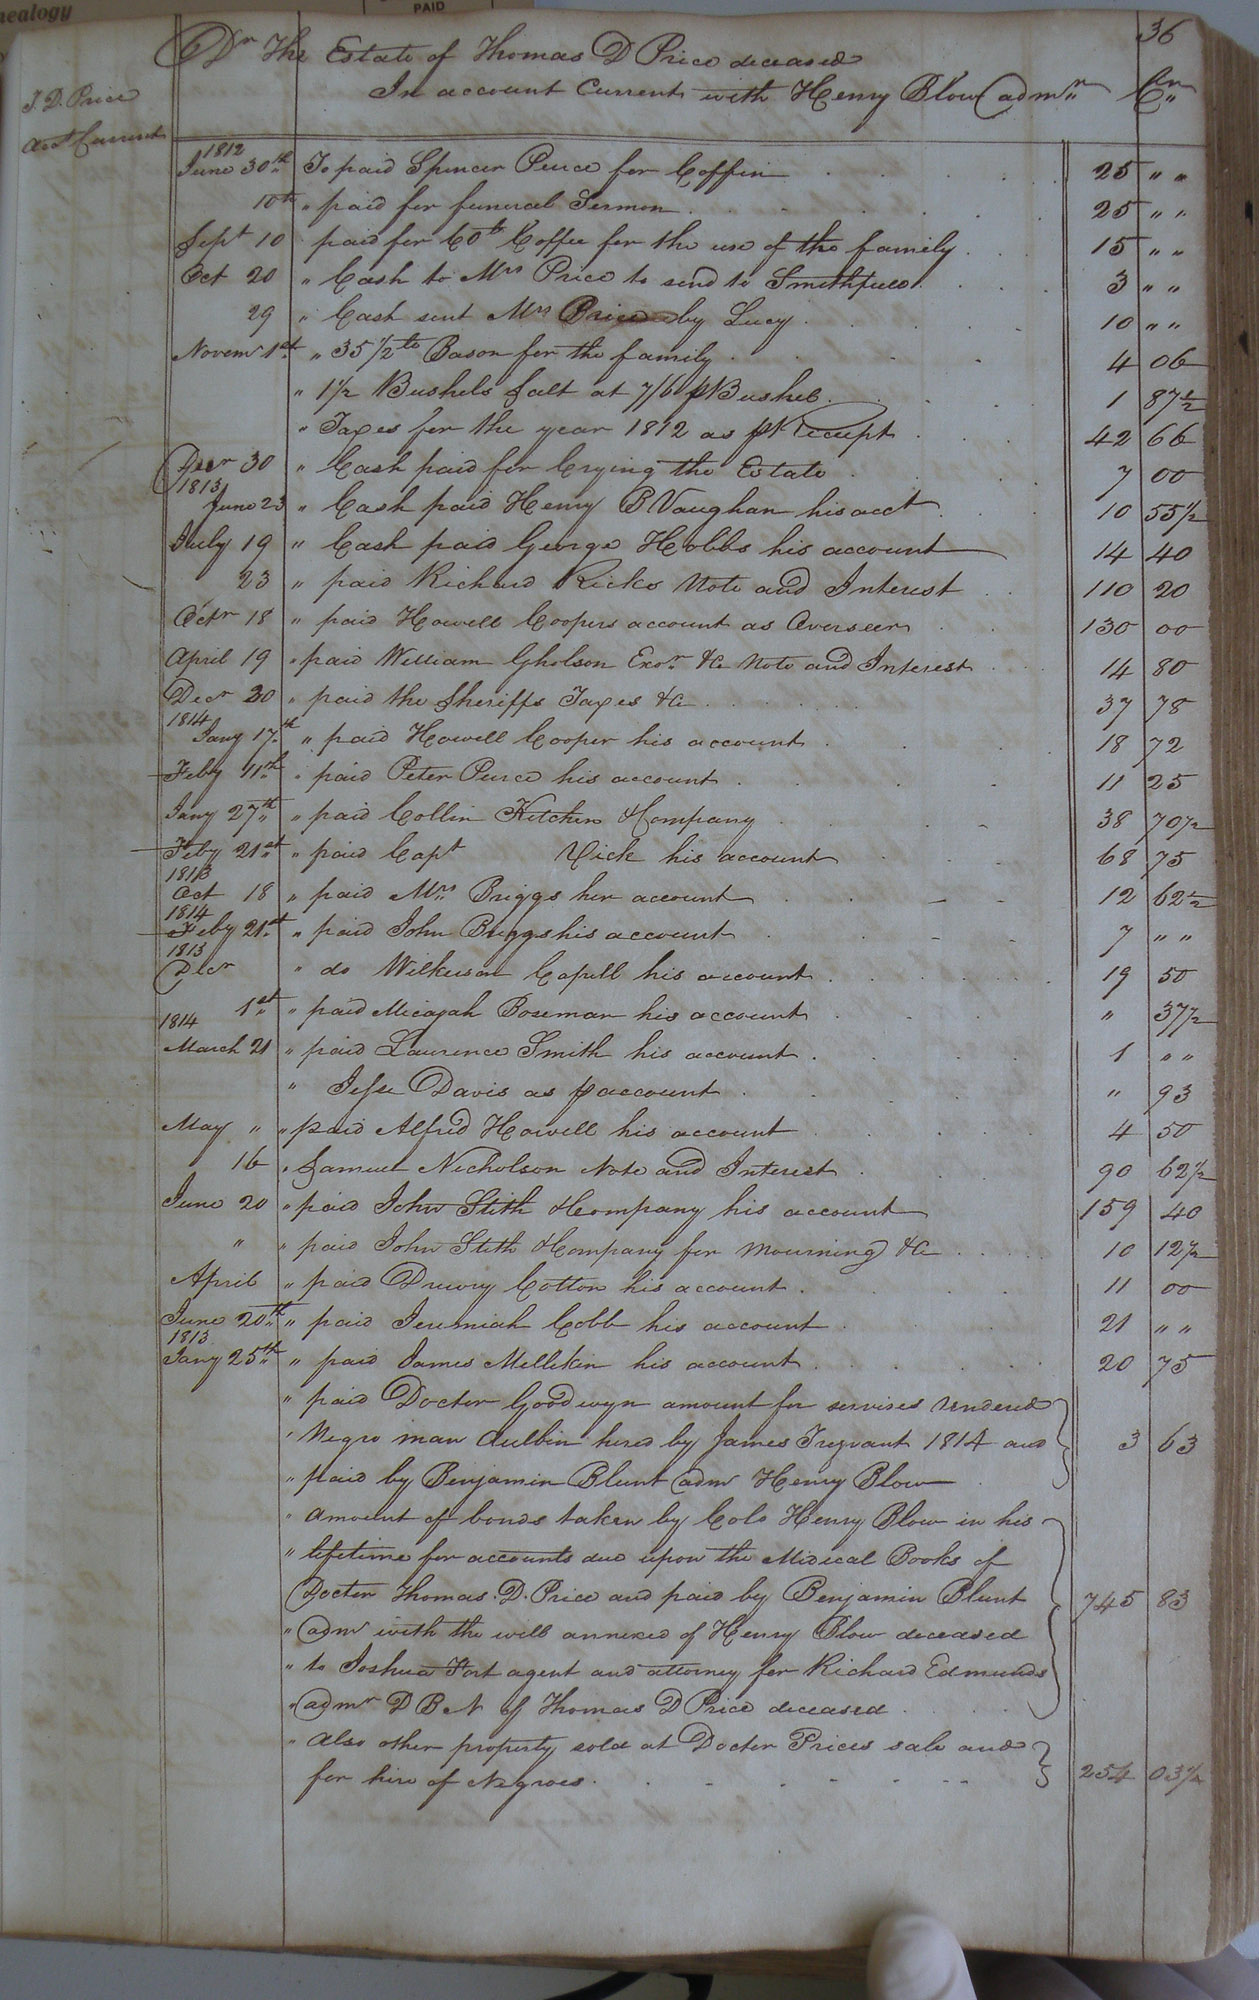 nealogy
PAID
36
Dr The Estate of Thomas D Price deceased
In account Current with Henry Blow admr Cr
T. D. Price
Act Current
1812
June 30th To paid Spencer Peirce for Coffin 25 " "
10th " paid for funeral Sermon 25 " "
Sept 10 paid for 60lb Coffee for the use of the family 15 " "
Oct 20 " Cash to Mrs Price to send to Smithfield 3 " "
29 " Cash sent Mrs Price by Lucy 10 " "
Novemr 1st " 35 1/2 lb Bason for the family 4 06
" 1 1/2 Bushels Salt at 7/6 p Bushel 1 87 1/2
" Taxes for the year 1812 as pr Receipt 42 66
Decr 30 " Cash paid for Crying the Estate 7 00
1813
June 23 " Cash paid Henry B Vaughan his acct 10 55 1/2
July 19 " Cash paid George Hobbs his account 14 40
23 " paid Richard Ricks Note and Interest 110 20
Octr 18 " paid Howell Coopers account as Overseer 130 00
April 19 " paid William Gholson Exor &c Note and Interest 14 80
Decr 30 " paid the Sheriffs Taxes &c 37 78
1814
Jany 17th " paid Howell Cooper his account 18 72
Feby 11th " paid Peter Peirce his account 11 25
Jany 27th " paid Collin Kitchen & Company 38 70 1/2
Feby 21st " paid Capt Vick his account 68 75
1813
Oct 18 " paid Mrs Briggs her account 12 62 1/2
1814
Feby 21st " paid John Briggs his account 7 " "
1813
Decr " do Wilkerson Capell his account 19 50
1st " paid Micajah Boseman his account " 37 1/2
1814
March 21 " paid Laurence Smith his account 1 " "
" Jesse Davis as p account " 93
May " " paid Alfred Howell his account 4 50
16 " Samuel Nicholson Note and Interest 90 62 1/2
June 20 " paid John Stith & Company his account 159 40
" " paid John Stith & Company for Mourning &c 10 12 1/2
April " paid Drewry Cotton his account 11 00
June 20th " paid Jeremiah Cobb his account 21 " "
1813
Jany 25th " paid James Millikin his account 20 75
" paid Doctor Goodwyn amount for servises rendered
" Negro man hired by James Trezvant 1814 and 3 63
" paid by Benjamin Blunt adm Henry Blow
" amount of bonds taken by Colo Henry Blow in his
" lifetime for accounts due upon the Midical Books of
Docter Thomas. D. Price and paid by Benjamin Blunt 745 83
" adm with the will annexed of Henry Blow deceased
" to Joshua Fort agent and attorney for Richard Edmunds
" admr D B N of Thomas D Price deceased
" also other property sold at Docter Prices sale and
for hire of Negroes 254 03 1/2